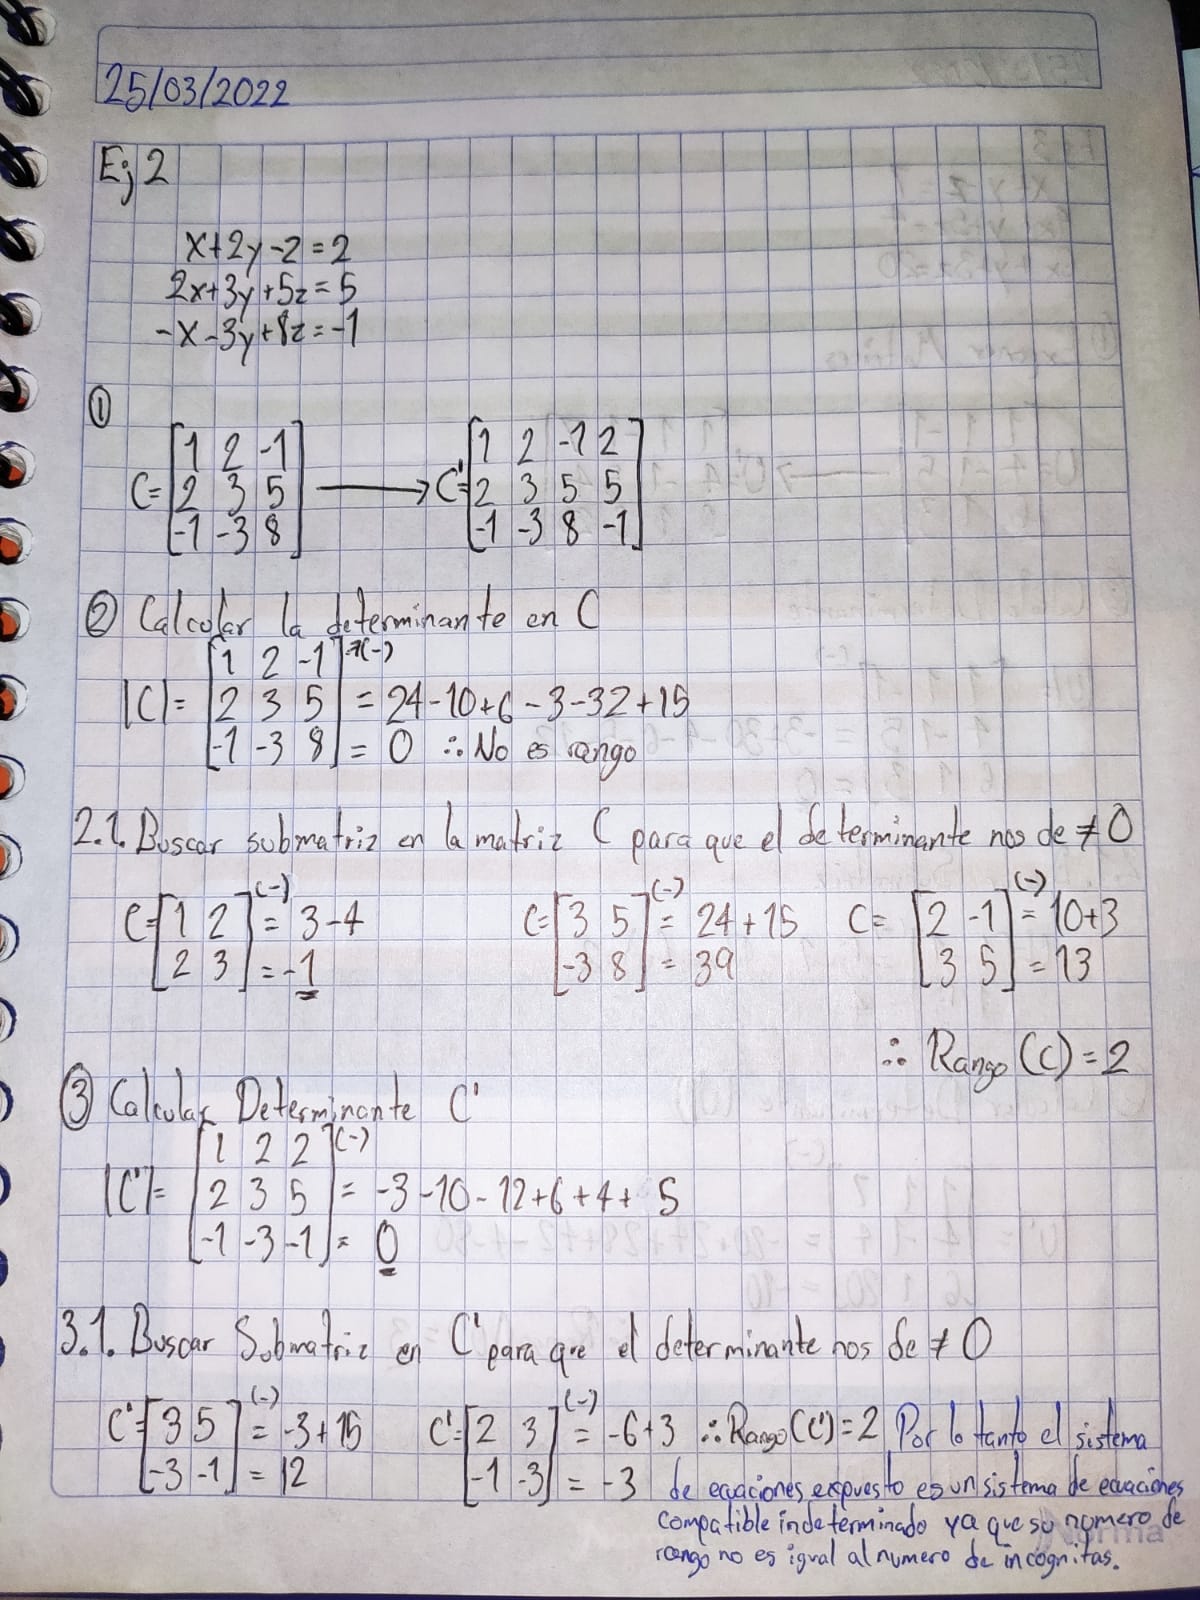 25/03/2022
Ej 2
x+2y-z=2
2x+3y+5z=5
-x-3y+8z=-1
①
C=[1 2 -1 → C'=[1 2 -1 2
2 3 5 2 3 5 5
-1 -3 8] -1 -3 8 -1]
② Calcular la determinante en C
[1 2 -1] →(-)
|C|= 2 3 5 = 24-10+6-3-32+15
-1 -3 8 = 0 ∴ No es rango
2.1. Buscar submatriz en la matriz C para que el determinante nos de ≠0
C=[1 2](-) = 3-4 C=[3 5](-) = 24+15 C=[2 -1](-) = 10+3
2 3 = -1 -3 8 = 39 3 5 = 13
∴ Rango (C) = 2
③ Calcular Determinante C'
[1 2 2](-)
|C'|= 2 3 5 = -3-10-12+6+4+ 5
-1 -3 -1 = 0
3.1. Buscar Submatriz en C' para que el determinante nos de ≠0
C'=[3 5](-) = -3+15 C'=[2 3](-) = -6+3 ∴ Rango (C')=2 Por lo tanto el sistema
-3 -1 = 12 -1 -3 = -3 de ecuaciones expuesto es un sistema de ecuaciones
compatible indeterminado ya que su numero de
rango no es igual al numero de incognitas.
Norma